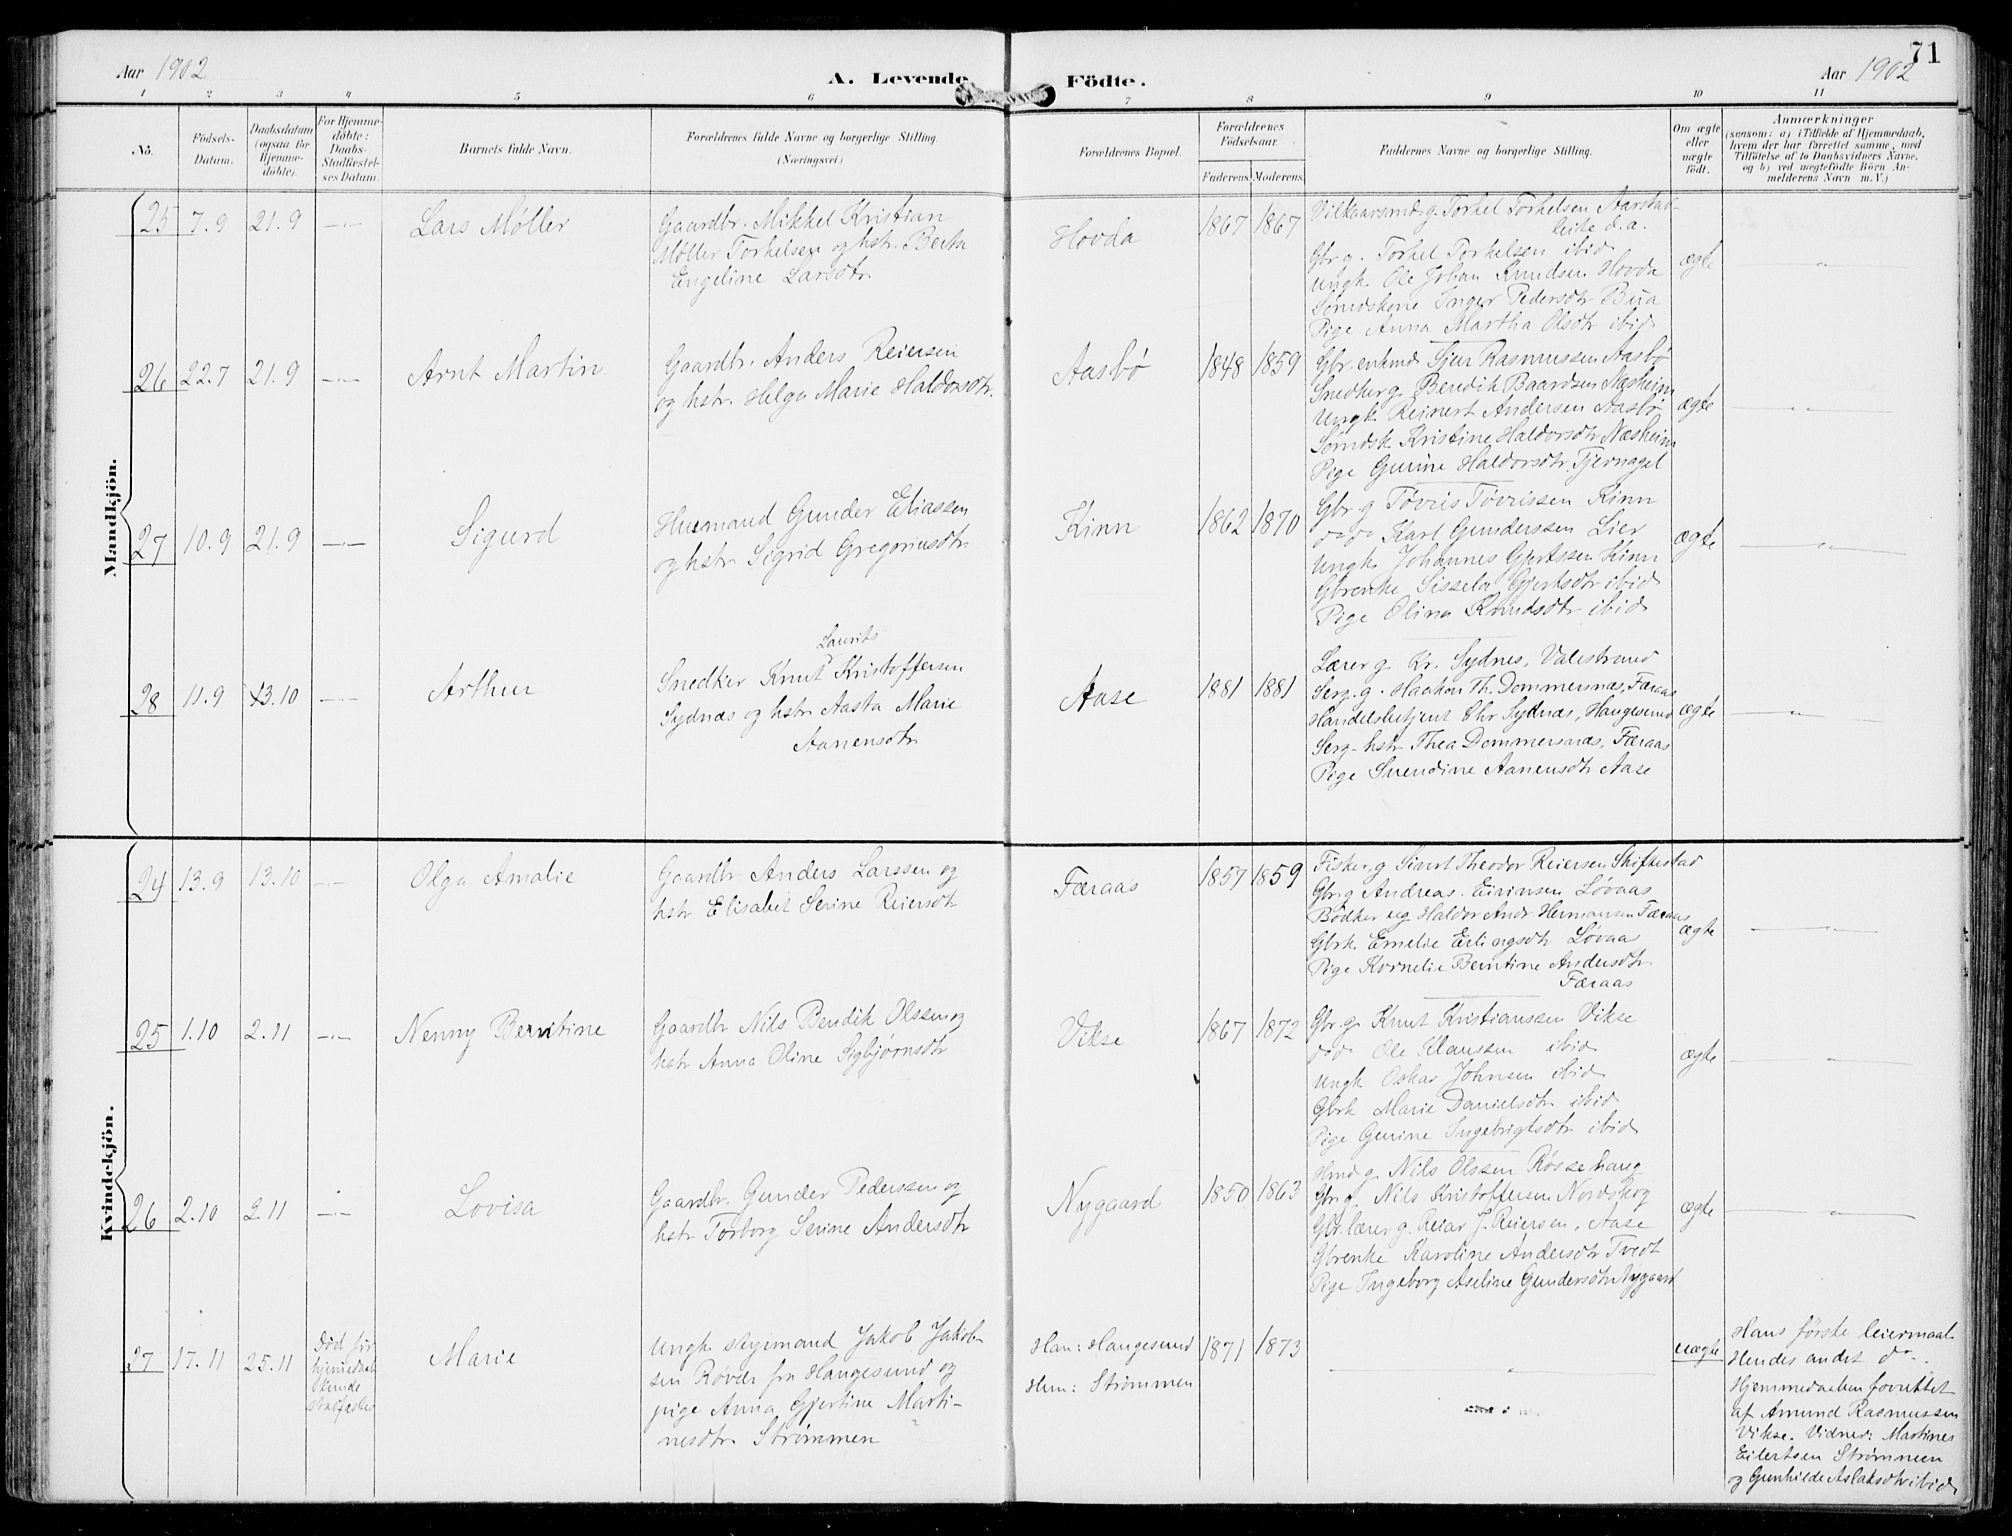 71
Aar 1902
A. Levende
Födte.
Aar 1902
1 2 3 4 5 6 7 8 9 10 11
No.
Födsels-
Datum.
Daabsdatum
(ogsaa for
Hjemme-
döbte).
For Hjemme-
döbte:
Daabs-
Stadfæstel-
ses Datum.
Barnets fulde Navn.
Forældrenes fulde Navne og borgerlige Stilling.
(Næringsvei.)
Forældrenes Bopæl.
Forældrenes
Födselsaar.
Faderens. Moderens.
Faddernes Navne og borgerlige Stilling.
Om ægte
eller
uægte
födt.
Anmærkninger
(saasom: a) i Tilfælde af Hjemmedaab,
hvem der har forrettet samme, med
Tilföielse af to Daabsvidners Navne,
og b) ved uægtefödte Börn An-
melderens Navn m. V.)
Mandkjön.
25 7.9 21.9 -"- Lars Møller
Gaardbr. Mikkel Kristian
Møller Torkelsen og hstr. Berta
Engeline Larsdtr.
Hovda
1867 1867
Vilkaarsmd. g. Torkel Torkelsen Aarstad-
leite d.a.
Gbr g. Torkel Torkelsen ibid.
Ungk. Ole Johan Knudsen Hovda
Sømdskone Inger Pedersdtr Bua
Pige Anna Martha Olsdtr ibid.
ægte
-"-
26 22.7 21.9 -"- Arnt Martin
Gaardbr. Anders Reiersen
og hstr. Helga Marie Haldorsdtr.
Aasbø
1848 1859
Gbr. enkmd. Sjur Rasmussen Aasbø
Snedker g. Bendik Baardsen Næsheim
Ungk. Reinert Andersen Aasbø
Sømdsk. Kristine Haldorsdtr Næsheim
Pige Gurine Haldorsdtr. Tjernagel
ægte
-"-
27 10.9 21.9 -"- Sigurd
Husmand Gunder Eliassen
og hstr. Sigrid Gregoriusdtr
Kinn
1862 1870
Gbr. g. Tøvris Tøvrissen Kinn
do do Karl Gunderssen Lier
Ungk. Johannes Gjertssen Kinn
Gbrenke Sissela Gjertsdtr ibid.
Pige Olina Knudsdtr ibid.
ægte
-"-
28 11.9 13.10 -"- Arthur
Laurits
Snedker Knut Kristoffersen
Sydnæs og hstr. Aasta Marie
Aanensdtr
Aase
1881 1881
Lærer g. Kr. Sydnes, Valestrand
Serg. g. Haakon Th. Dommersnæs, Færaas
Handelsbetjent Chr Sydnæs, Haugesund
Serg-hstr Thea Dommersnæs, Færaas
Pige Svendine Aanensdtr Aase
ægte
-"-
Kvindekjön.
24 13.9 13.10 -"- Olga Amalie
Gaardbr Anders Larssen og
hstr Elisabet Serine Reiersdtr
Færaas
1857 1859
Fisker g Sivert Theodor Reiersen Skiftestad
Gbr. g Andreas Eirinsen Løvaas
Bødker ug Haldor Andr. Hermansen Færaas
Gbrk. Emelie Erlingsdtr Løvaas
Pige Kornelie Berntine Andersdtr
Færaas
ægte
-"-
25 1.10 2.11 -"- Nenny Berntine
Gaardbr Nils Bendik Olssen og
hstr Anna Oline Sigbjørnsdtr
Vikse
1867 1872
Gbr. g. Knut Kristianssen Vikse
do do Ole Klaussen ibid.
Ungk Oskar Johnsen ibid.
Gbrk Marie Danielsdtr ibid
Pige Gurine Ingebrigtsdtr ibid.
ægte
-"-
26 2.10 2.11 -"- Lovisa
Gaardbr. Gunder Pederssen og
hstr Torborg Serine Andersdtr
Nygaard
1850 1863
Hmd g. Nils Olssen Røssehaug
Gbr. g. Nils Kristoffersen Nordskog
Gbr. lærer g. Reiar J. Reiersen, Aase
Gbrenke Karoline Andersdtr Tvedt
Pige Ingeborg Aseline Gundersdtr Nygaard
ægte
-"-
27 17.11 25.11
Død før
hjemmedaab
kunde
stadfæstes
Marie
Ungk. Jakob Jakob-
sen Røvær fra Haugesund og
pige Anna Gjertine Marti-
nesdtr. Strømmen
Han: Haugesund
Hun: Strømmen
1871 1873
-"-
uægte
Hans første leiermaal
Hendes andet do.
Hjemmedaaben forrettet
af Amund Rasmussen
Vikse. Vidner: Martines
Eilertsen Strømmen
og Gunhilde Aslaksdtr ibid.